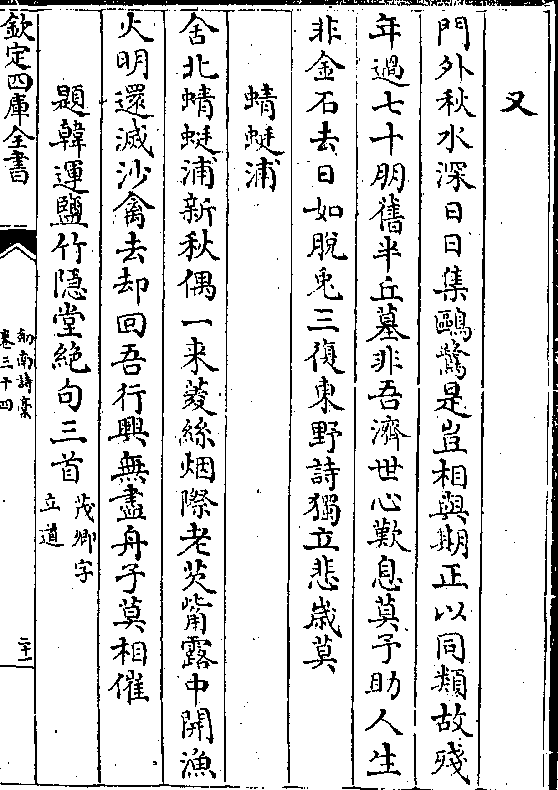 又
門外秋水深日日集鷗鷺是豈相與期正以同類故殘
年過七十朋舊半丘墓非吾濟世心歎息莫予助人生
非金石去日如脫兎三復東野詩獨立悲歳莫
蜻蜓浦
舍北蜻蜓浦新秋偶一来菱絲烟際老芡觜露中開漁
火明還滅沙禽去却回吾行興無盡舟子莫相催
題韓運鹽竹隠堂絶句三首茂卿字立道
欽定四庫全書
劍南詩稾
卷三十四
二十一